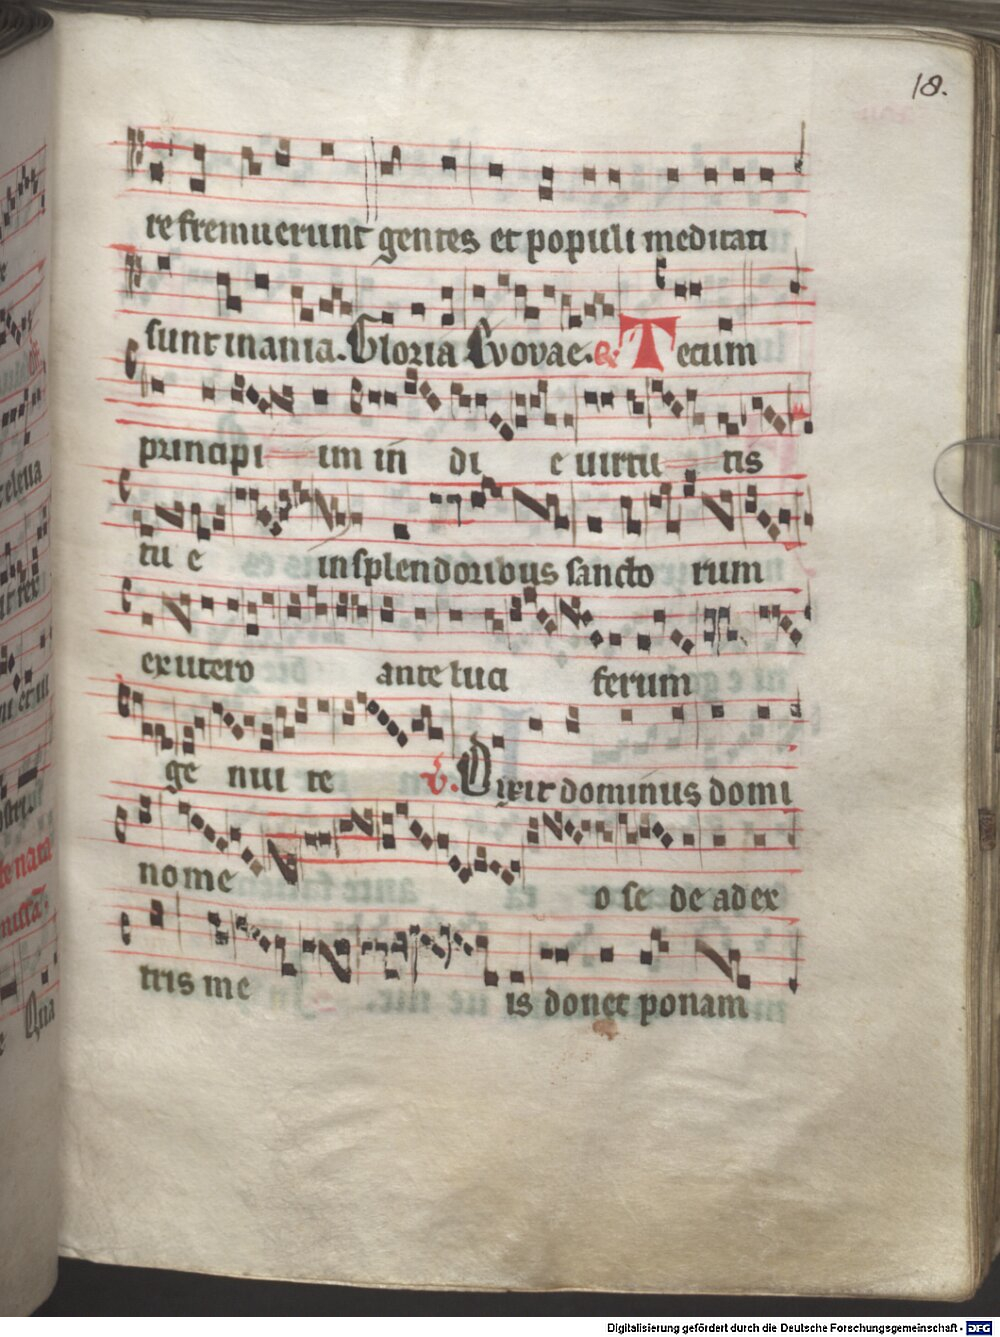 18.
re fremuerunt gentes et populi meditati
sunt inania. Gloria Evovae. G Tecum
principi um in di e virtu tis
tu e in splendoribus sancto rum
ex utero ante luci ferum
ge nui te V. Dixit dominus domi
no me o se de a dex
tris me is donec ponam
Digitalisierung gefördert durch die Deutsche Forschungsgemeinschaft - DFG